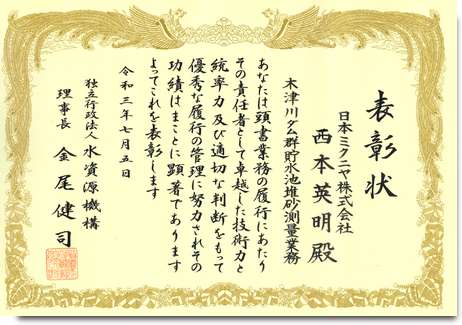 表彰状
日本ミクニヤ株式会社
西本英明殿
木津川ダム群貯水池堆砂測量業務
あなたは頭書業務の履行にあたり
その責任者として卓越した技術力と
統率力及び適切な判断をもって
優秀な履行の管理に努力されその
功績はまことに顕著であります
よってこれを表彰します
令和三年七月五日
独立行政法人水資源機構
理事長 金尾健司